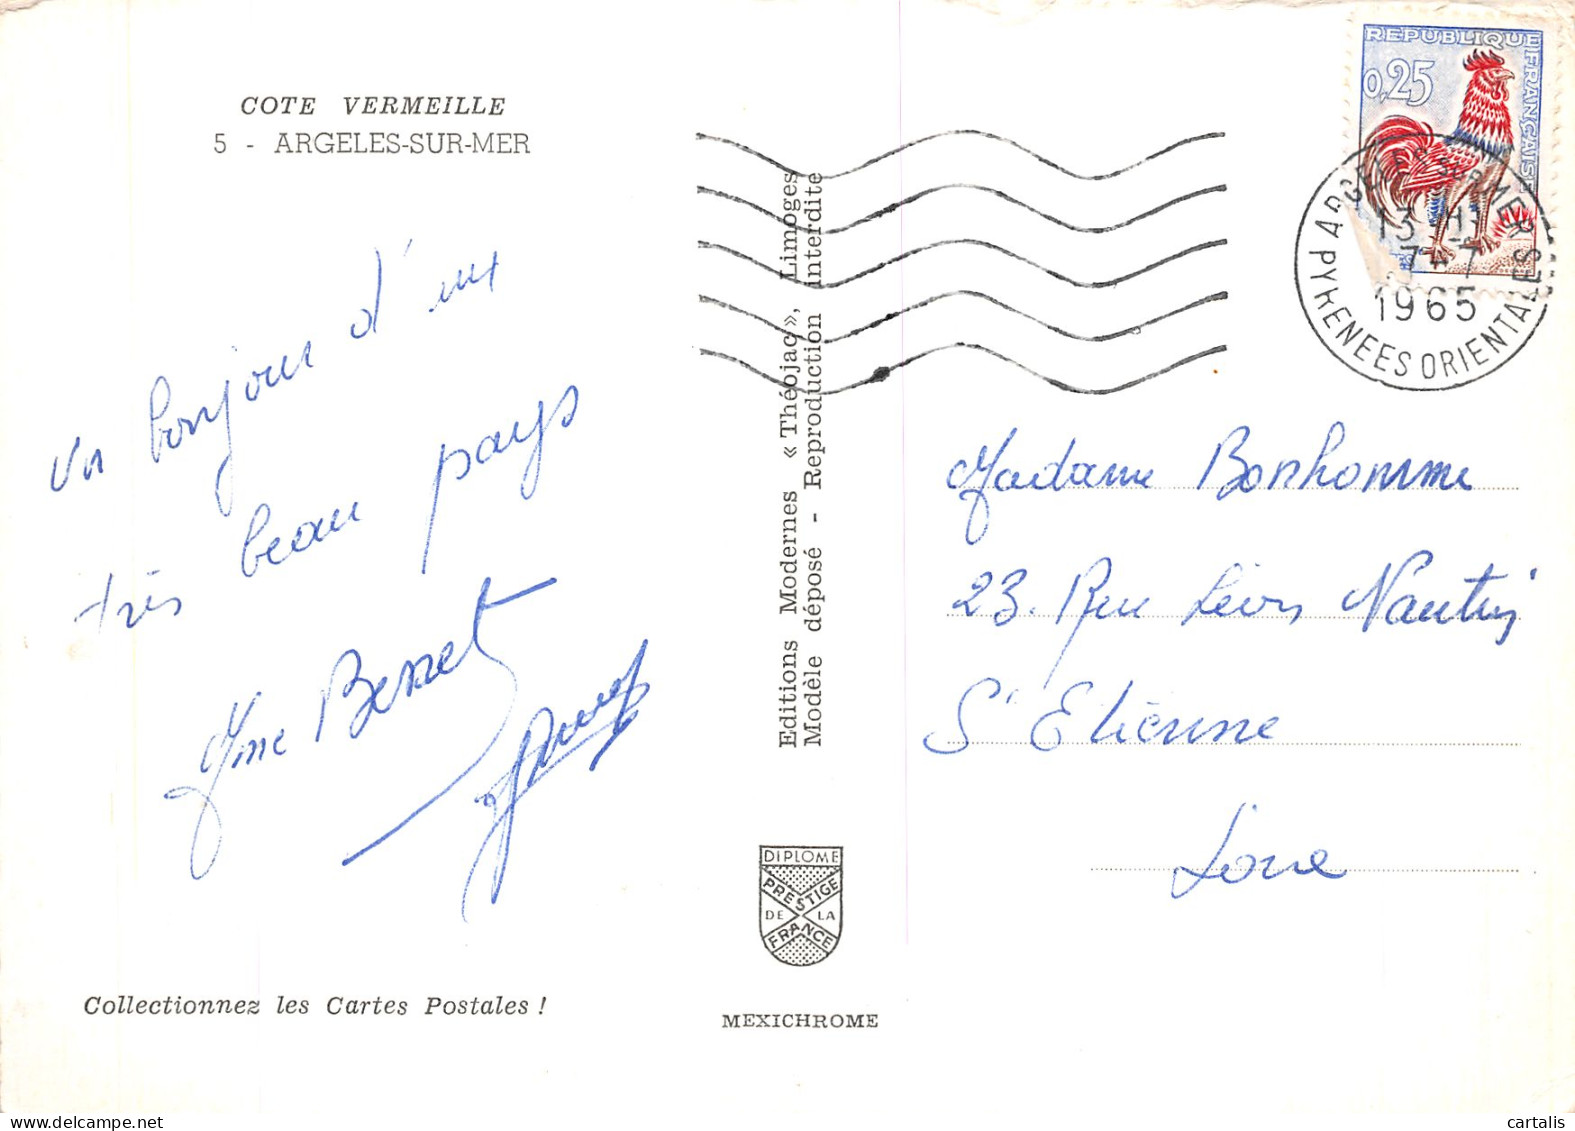 COTE VERMEILLE
5 - ARGELES-SUR-MER
Un bonjour d'un
très beau pays
Mme Bennet
Editions Modernes « Théojac », Limoges
Modèle déposé - Reproduction interdite
DIPLOME
PRESTIGE
DE LA
FRANCE
MEXICHROME
Collectionnez les Cartes Postales !
REPUBLIQUE FRANÇAISE
0,25
ARGELES SUR MER
13 H
7-7
1965
PYRENEES ORIENTALES
Madame Bonhomme
23. Rue Léon Nautin
St Etienne
Loire
cartalis